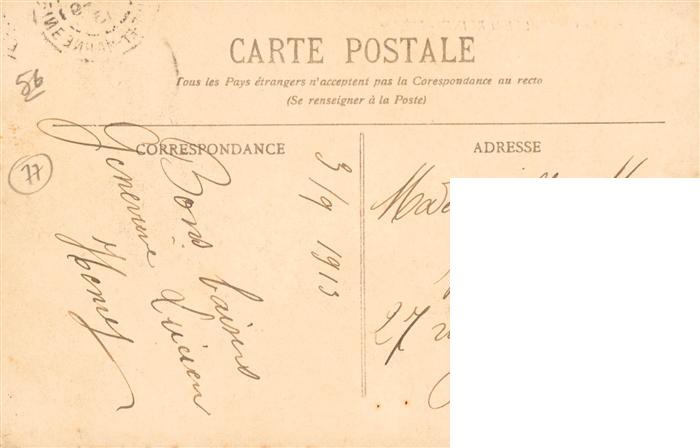 CARTE POSTALE
Tous les Pays étrangers n'acceptent pas la Corespondance au recto
(Se renseigner à la Poste)
CORRESPONDANCE
ADRESSE
56
77
3/9 1913
Bons baisers
Lucien
Genevieve
Henry
27